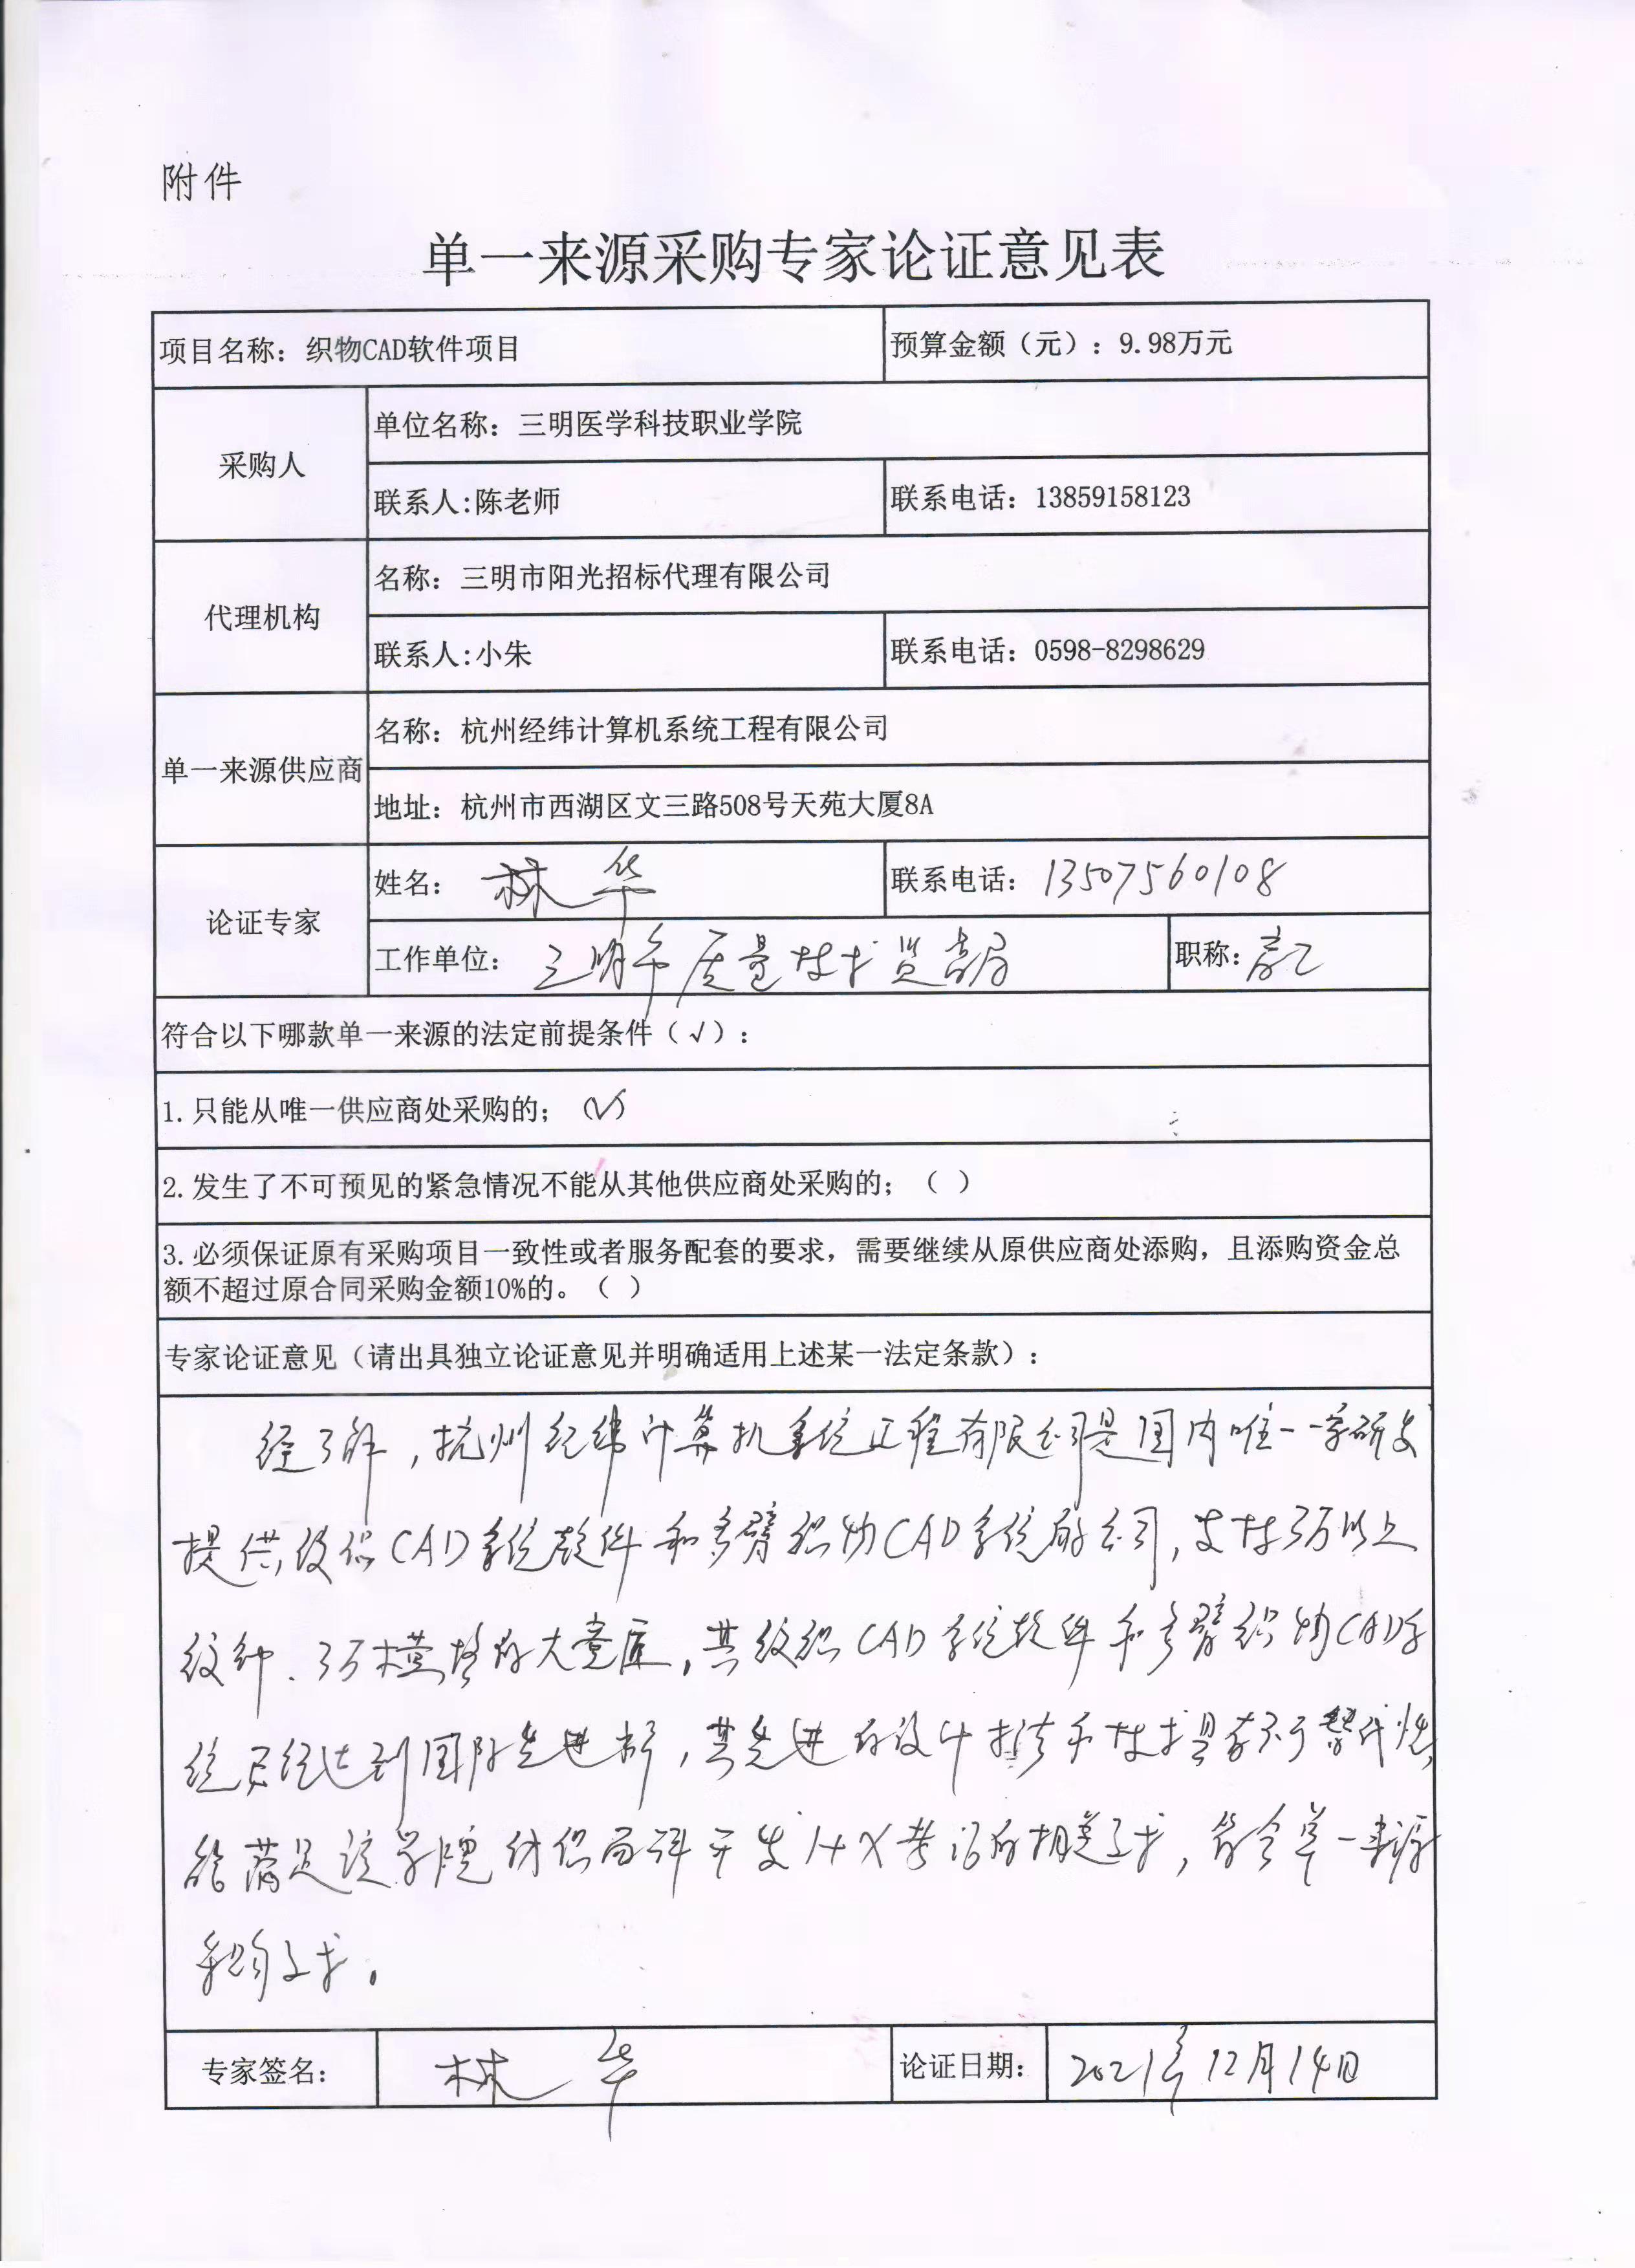 附件
单一来源采购专家论证意见表
项目名称：织物CAD软件项目
预算金额（元）：9.98万元
采购人
单位名称：三明医学科技职业学院
联系人:陈老师
联系电话：13859158123
代理机构
名称：三明市阳光招标代理有限公司
联系人:小朱
联系电话：0598-8298629
单一来源供应商
名称：杭州经纬计算机系统工程有限公司
地址：杭州市西湖区文三路508号天苑大厦8A
论证专家
姓名：林华
联系电话：13507560108
工作单位：三明市质量技术监督局
职称：高工
符合以下哪款单一来源的法定前提条件（√）：
1.只能从唯一供应商处采购的；（√）
2.发生了不可预见的紧急情况不能从其他供应商处采购的；（ ）
3.必须保证原有采购项目一致性或者服务配套的要求，需要继续从原供应商处添购，且添购资金总
额不超过原合同采购金额10%的。（ ）
专家论证意见（请出具独立论证意见并明确适用上述某一法定条款）：
经了解，杭州经纬计算机系统工程有限公司是国内唯一一家研发
提供纹织CAD系统软件和多臂织物CAD系统的公司，支持3万以上
纹针、3万横格的大意匠，其纹织CAD系统软件和多臂织物CAD系
统已经达到国际先进水平，其先进的设计方法和技术具有不可替代性，
能满足该学院纺织面料开发1+X考证的相关要求，符合单一来源
采购要求。
专家签名：
林华
论证日期：
2021年12月14日